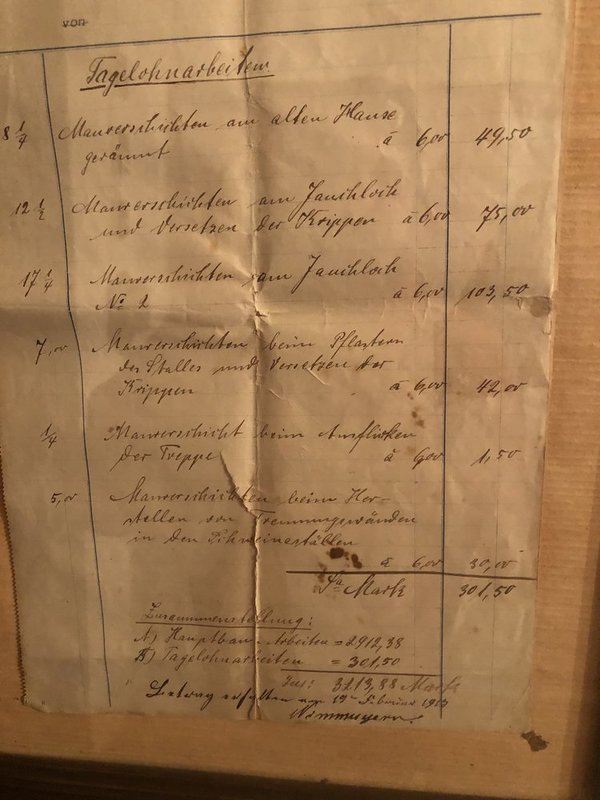 von
Tagelohnarbeiten.
8 1/4 Maurerschichten am alten Hause
geräumt à 6,00 49,50
12 1/2 Maurerschichten am Jauchloch
und Versetzen der Krippen à 6,00 75,00
17 1/4 Maurerschichten am Jauchloch
No 2 à 6,00 103,50
7,00 Maurerschichten beim Pflastern
des Stalles und Versetzen der
Krippen à 6,00 42,00
1/4 Maurerschicht beim Ausflicken
der Treppe à 6,00 1,50
5,00 Maurerschichten beim Her-
stellen von Trennungswänden
in den Schweineställen
à 6,00 30,00
Sa Mark 301,50
Zusammenstellung:
A) Hauptbau-Arbeiten = 2912,38
B) Tagelohnarbeiten = 301,50
Sa: 3213,88 Mark
Betrag erhalten am 19. Februar